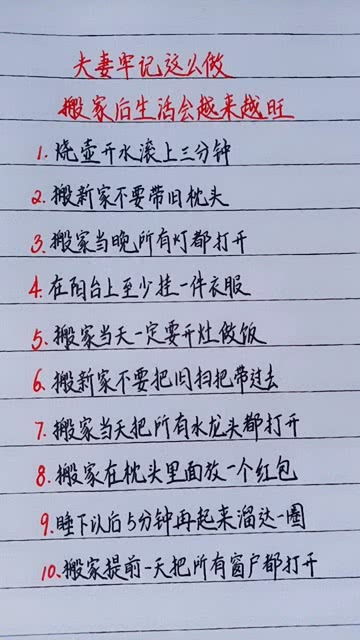 夫妻牢记这么做
搬家后生活会越来越旺
1. 烧壶开水滚上三分钟
2. 搬新家不要带旧枕头
3. 搬家当晚所有灯都打开
4. 在阳台上至少挂一件衣服
5. 搬家当天一定要开灶做饭
6. 搬新家不要把旧扫把带过去
7. 搬家当天把所有水龙头都打开
8. 搬家在枕头里面放一个红包
9. 睡下以后5分钟再起来溜达一圈
10. 搬家提前一天把所有窗户都打开